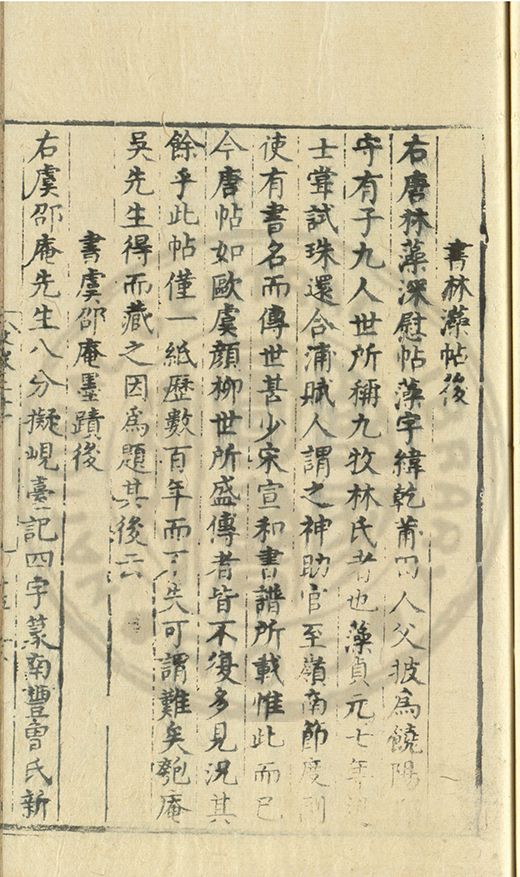 書林藻帖後
右唐林藻深慰帖藻字緯乾莆田人父披為饒陽
守有子九人世所稱九牧林氏者也藻貞元七年
士嘗試珠還合浦賦人謂之神助官至嶺南節度副
使有書名而傳世甚少宋宣和書譜所載惟此而已
今唐帖如歐虞顏柳世所盛傳者皆不復多見況其
餘乎此帖僅一紙歷數百年而不失可謂難矣匏庵
吳先生得而藏之因為題其後云
書虞邵庵墨蹟後
右虞邵庵先生八分擬峴臺記四字篆南豐曾氏新